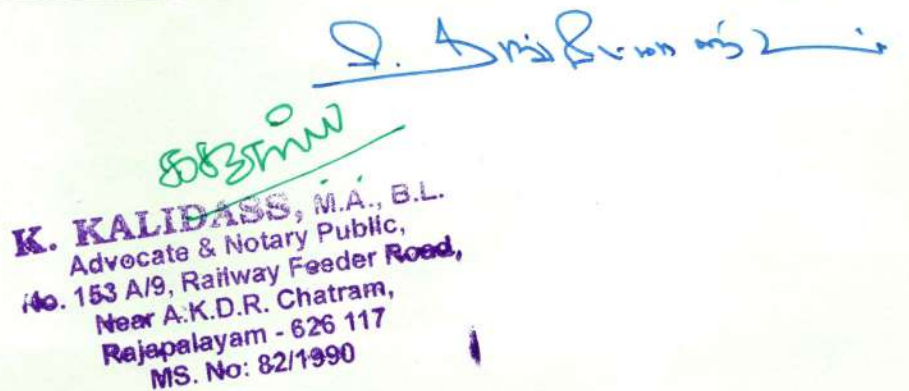 K. KALIDASS, M.A., B.L.
Advocate & Notary Public,
No. 153 A/9, Railway Feeder Road,
Near A.K.D.R. Chatram,
Rajapalayam - 626 117
MS. No: 82/1990